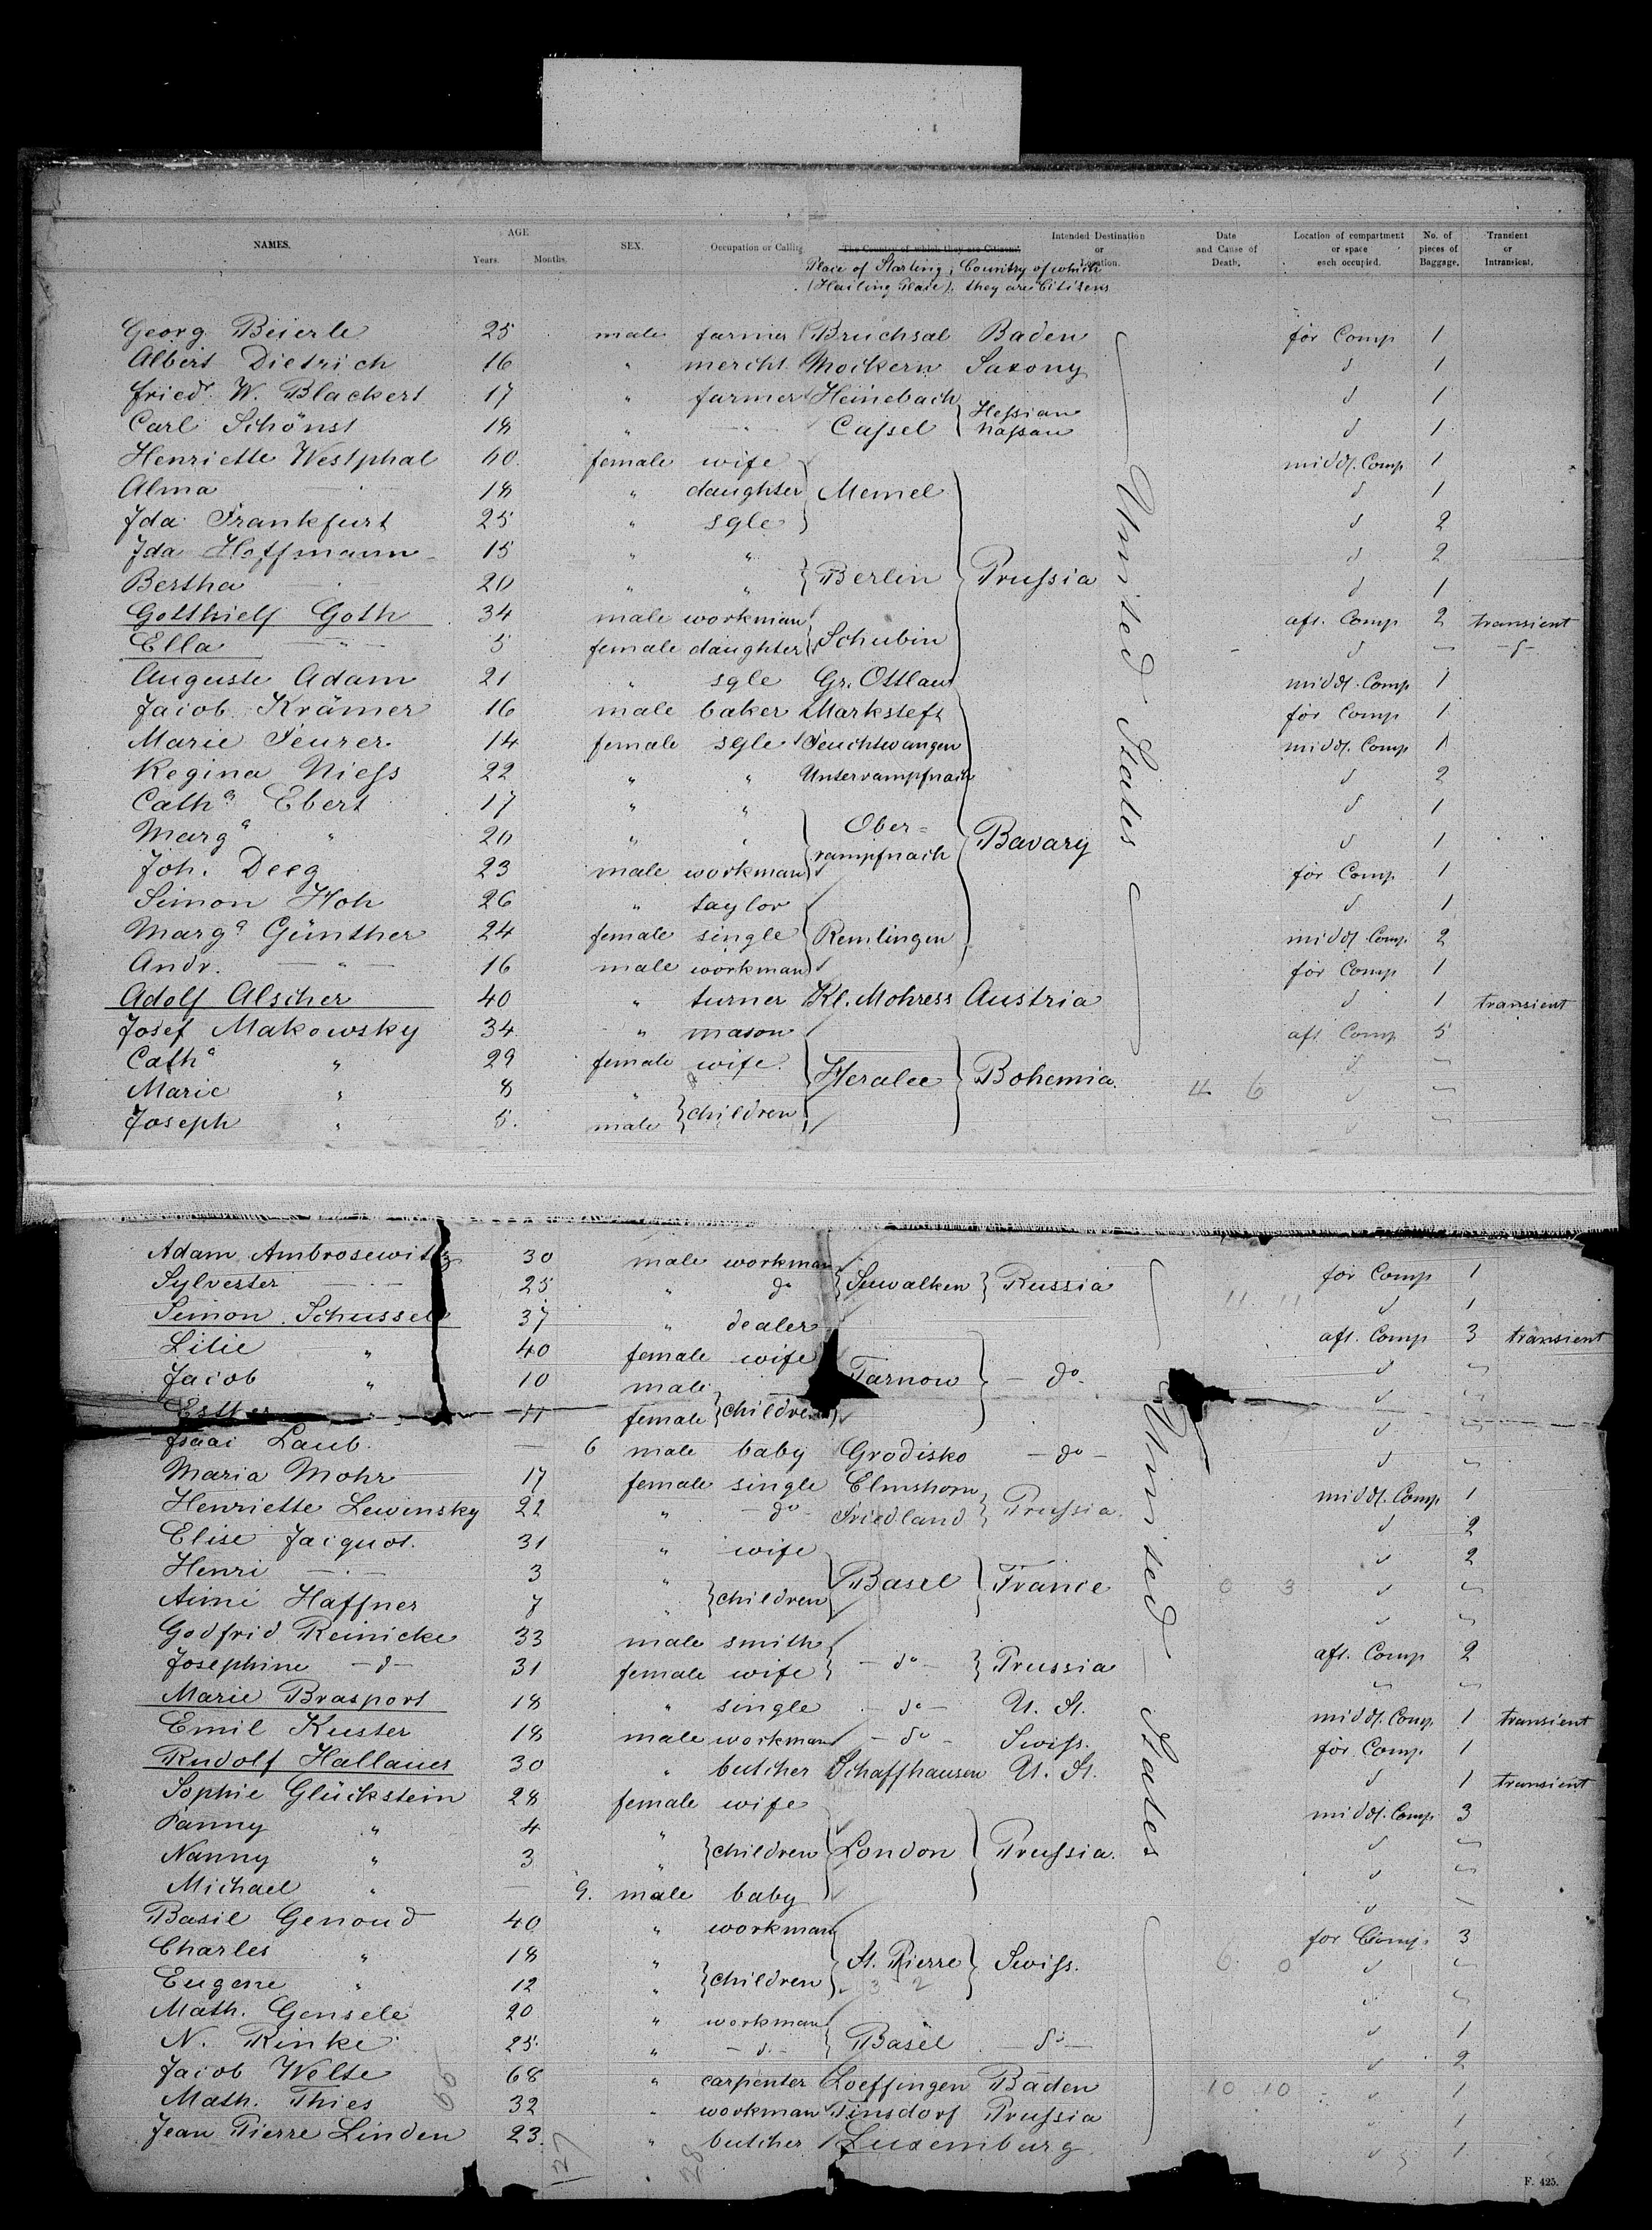 NAMES. AGE Years. Months. SEX. Occupation or Calling. The Country of which they are Citizens. Intended Destination or Location. Date and Cause of Death. Location of compartment or space each occupied. No. of pieces of Baggage. Transient or Intransient.
Place of Starting; Country of which
(Hailing Place), they are Citizens
Georg Beierle 25 male farmer Bruchsal Baden United States for Comp 1
Albert Dietrich 16 " mercht. Mockern Saxony d 1
Friedr. W. Blackert 17 " farmer Heinebach Hessian Nassau d 1
Carl Schönst 18 " " Cassel d 1
Henriette Westphal 60 female wife middl. Comp 1
Alma " 18 " daughter Memel d 1
Ida Frankfurt 25 " sgle d 2
Ida Hoffmann 15 " " d 2
Bertha " 20 " " Berlin Prussia d 1
Gotthielf Goth 34 male workman aft. Comp 2 transient
Ella " 5 female daughter Schubin d - d -
Auguste Adam 21 " sgle Gr. Ottlau middl. Comp 1
Jacob Krämer 16 male baker Marksteft for Comp 1
Marie Feurer 14 female sgle Feuchtwangen middl. Comp 1
Regina Niess 22 " " Unterrampfnach d 2
Catha Ebert 17 " " d 1
Marga " 20 " " Ober= rampfnach Bavary d 1
Joh. Deeg 23 male workman for Comp 1
Simon Hoh 26 " taylor d 1
Marga Günther 24 female single Remlingen middl. Comp. 2
Andr. " 16 male workman for Comp 1
Adolf Alscher 40 " turner Kl. Mohress Austria d 1 transient
Josef Makowsky 34 " mason aft Comp 5
Catha " 29 female wife d
Marie " 8 " children Heralec Bohemia. 4 6 d
Joseph " 5. male d
Adam Ambrosewitz 30 male workman for Comp 1
Sylvester " 25 " do Suwalken Russia 11 11 d 1
Simon Schussel 37 " dealer aft. Comp 3 transient
Lilie " 40 female wife d
Jacob " 10 male children Tarnow - do - d
Esther " 11 female d
Isaac Laub. — 6 male baby Grodisko - do - d
Maria Mohr 17 female single Elmshorn middl. Comp 1
Henriette Lewensky 22 " - do - Friedland Prussia. d 2
Elise Jacquot. 31 " wife d 2
Henri " 3 " children Basel France 0 3 d
Aimé Haffner 7 "
Godfrid Reinicke 33 male smith aft. Comp 2
Josephine - d - 31 female wife - do - Prussia
Marie Brasport 18 " single - do - U. St. middl. Comp. 1 transient
Emil Kuster 18 male workman - do - Swiss. for Comp 1
Rudolf Hallauer 30 " butcher Schaffhausen U. St. d 1 transient
Sophie Glückstein 28 female wife middl. Comp 3
Fanny " 4 " children London Prussia. d
Nanny " 3 " d
Michael " — 9. male baby d
Basil Genoud 40 " workman for Comp. 3
Charles " 18 " children St. Pierre Swiss. 6 0 d
Eugene " 12 " 3 2 d
Math. Gensele 20 " workman d 1
N. Rinke 25. " - d. - Basel - do - d 2
Jacob Welte 68 " carpenter Loeffingen Baden 10 10 d 1
Math. Thies 32 " workman Tinsdorf Prussia d 1
Jean Pierre Linden 23. " butcher Luxemburg. d 1
United States
55
127
28
F. 425.